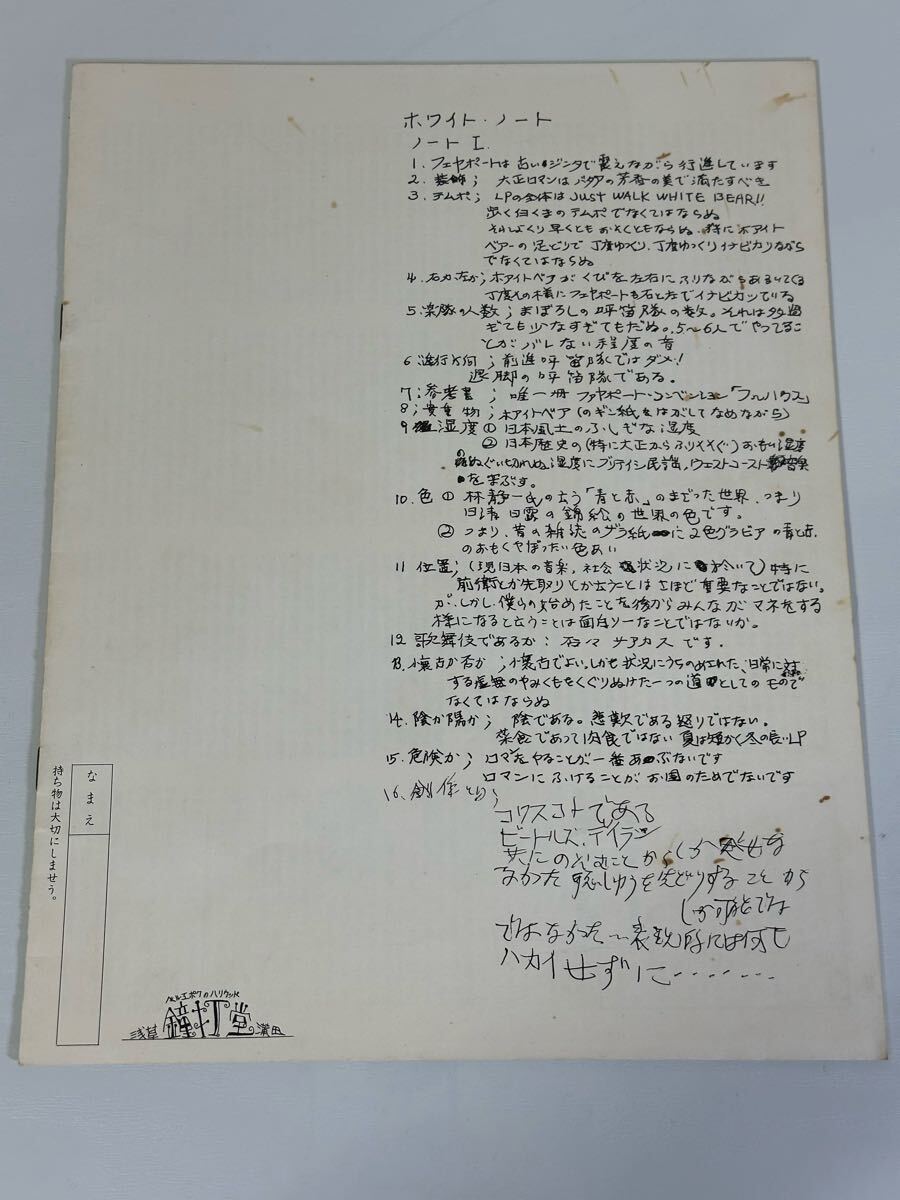 ホワイト・ノート
ノート I.
1. フェヤポートは古いジンタで震えながら行進しています
2. 装飾； 大正ロマンはババアの芳香の美で満たすべき
3. テムポ； LPの全体はJUST WALK WHITE BEAR!!
歩く白くまのテムポでなくてはならぬ
それよりく早くともおそくともならぬ．特にホアイト
ベアーの足どりで丁度ゆっくり、丁度ゆっくりイナビカリながら
でなくてはならぬ
4. 右か左か； ホアイトベアがくびを左右にふりながらあるいてくる
丁度その様にフェヤポートも右と左でイナビカッている
5. 楽隊の人数； まぼろしの呼笛隊の数。それは多過
ぎても少なすぎてもだめ。5〜6人でやってるこ
とがバレない程度の音
6 進行方向； 前進呼笛隊ではダメ！
退脚の呼笛隊である。
7； 参考書； 唯一冊 フェヤポート・コンベンション「フルハウス」
8； 貴重物； ホアイトベア（のギン紙をはがしてなめながら）
9 湿度 ① 日本風土のふしぎな湿度
② 日本歴史の（特に大正からふりそそぐ）おもい湿度
のぬぐい切れぬ湿度にブリテイシ民謡，ウエストコースト音楽
を学ぶす。
10. 色 ① 林静一氏の云う「青と赤」のまじった世界．つまり
日清日露の錦絵の世界の色です。
② つまり、昔の雑誌のザラ紙に2色グラビアの青と赤
のおもくやぼったい色あい
11 位置； （現日本の音楽，社会状況に於いて）特に
前衛とか先取りとか云うことはさほど重要なことではない。
が、しかし、僕らの始めたことを後からみんながマネをする
様になると云うことは面白リーなことではないか。
12 歌舞伎であるか： 否々 サアカスです．
13. 懐古か否か； 懐古でよい．しかも状況にうちのめされた、日常に対
する虚無のやみくもをくぐりぬけた一つの道としてのもので
なくてはならぬ
14. 陰か陽か； 陰である。悲歎である怒りではない。
菜食であって肉食ではない 夏は短かく冬の長いLP
15. 危険か； ロマンをやることが一番あぶないです
ロマンにふけることがお国のためでないです
16、創作とは；
コワスコトである
ビートルズ、デイラン
共にのぞむことからしか
なかった
先どりすることから
しか可能では
ではなかった〜表現的には何も
ハカイせずに‥‥‥‥
なまえ
持ち物は大切にしませう。
ベルエポックのハリウッド
浅草 鐘打堂の蒲田